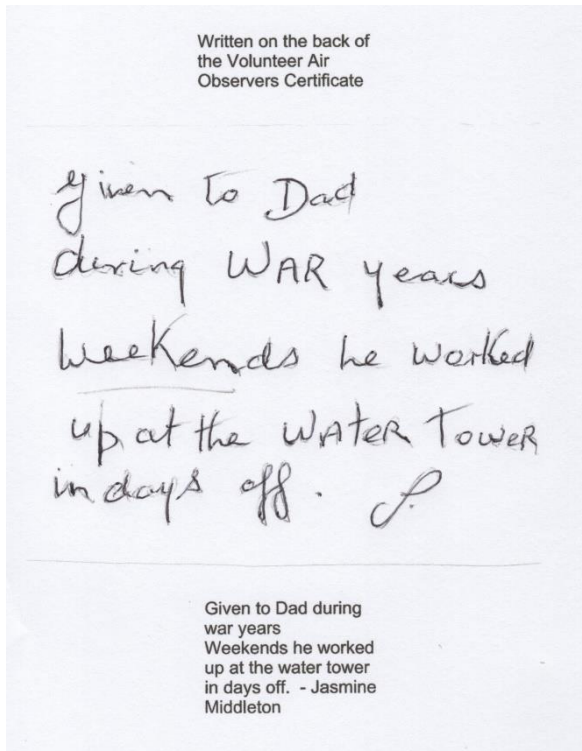 Written on the back of
the Volunteer Air
Observers Certificate
Given to Dad
during WAR years
Weekends he worked
up at the WATER TOWER
in days off. J.
Given to Dad during
war years
Weekends he worked
up at the water tower
in days off. - Jasmine
Middleton